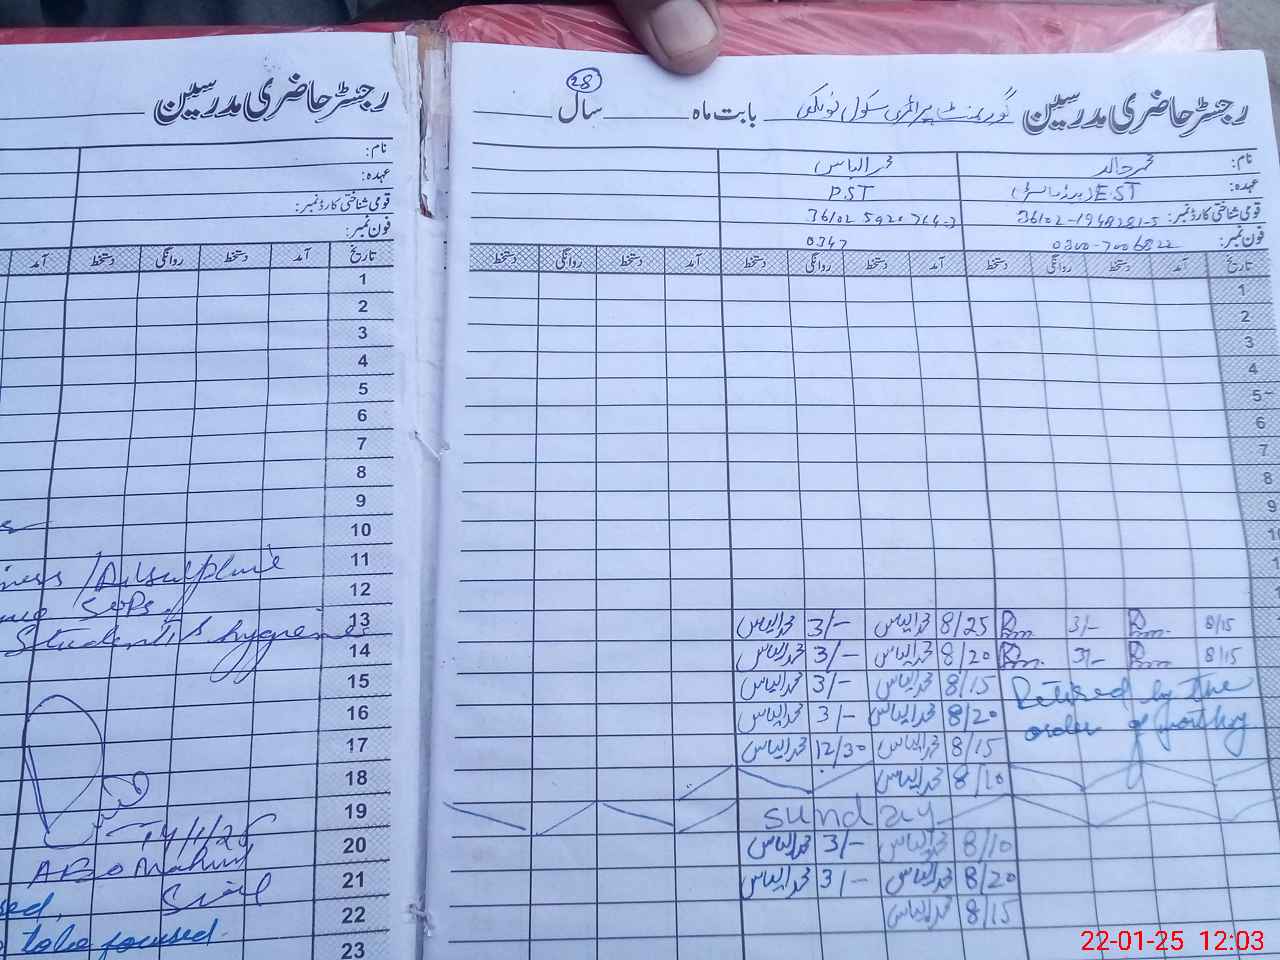 رجسٹر حاضری مدرسین گورنمنٹ پرائمری سکول بابت ماہ سال 28
نام: محمد خالد محمد الیاس
عہدہ: E.ST P.ST
قومی شناختی کارڈ نمبر: 36102-1948281-5 36102
فون نمبر: 0300-7006822 0347
تاریخ آمد دستخط روانگی دستخط آمد دستخط روانگی دستخط دستخط دستخط
1
2
3
4
5
6
7
8
9
10
13 8/15 3/- 8/25 محمد الیاس 3/- محمد الیاس
14 8/15 3/- 8/20 محمد الیاس 3/- محمد الیاس
8/15 محمد الیاس 3/- محمد الیاس
Retired by the
8/20 محمد الیاس 3/- محمد الیاس
order of worthy
8/15 محمد الیاس 12/30 محمد الیاس
8/10 محمد الیاس
sunday
8/10 محمد الیاس 3/- محمد الیاس
8/20 محمد الیاس 3/- محمد الیاس
8/15 محمد الیاس
رجسٹر حاضری مدرسین
نام:
عہدہ:
قومی شناختی کارڈ نمبر:
فون نمبر:
تاریخ آمد دستخط روانگی دستخط آمد
1
2
3
4
5
6
7
8
9
10
11
12
SOPs
13
Students hygiene
14
15
16
17
18
19
14/1/25
20
AEO
21
22
to be focused.
23
22-01-25 12:03